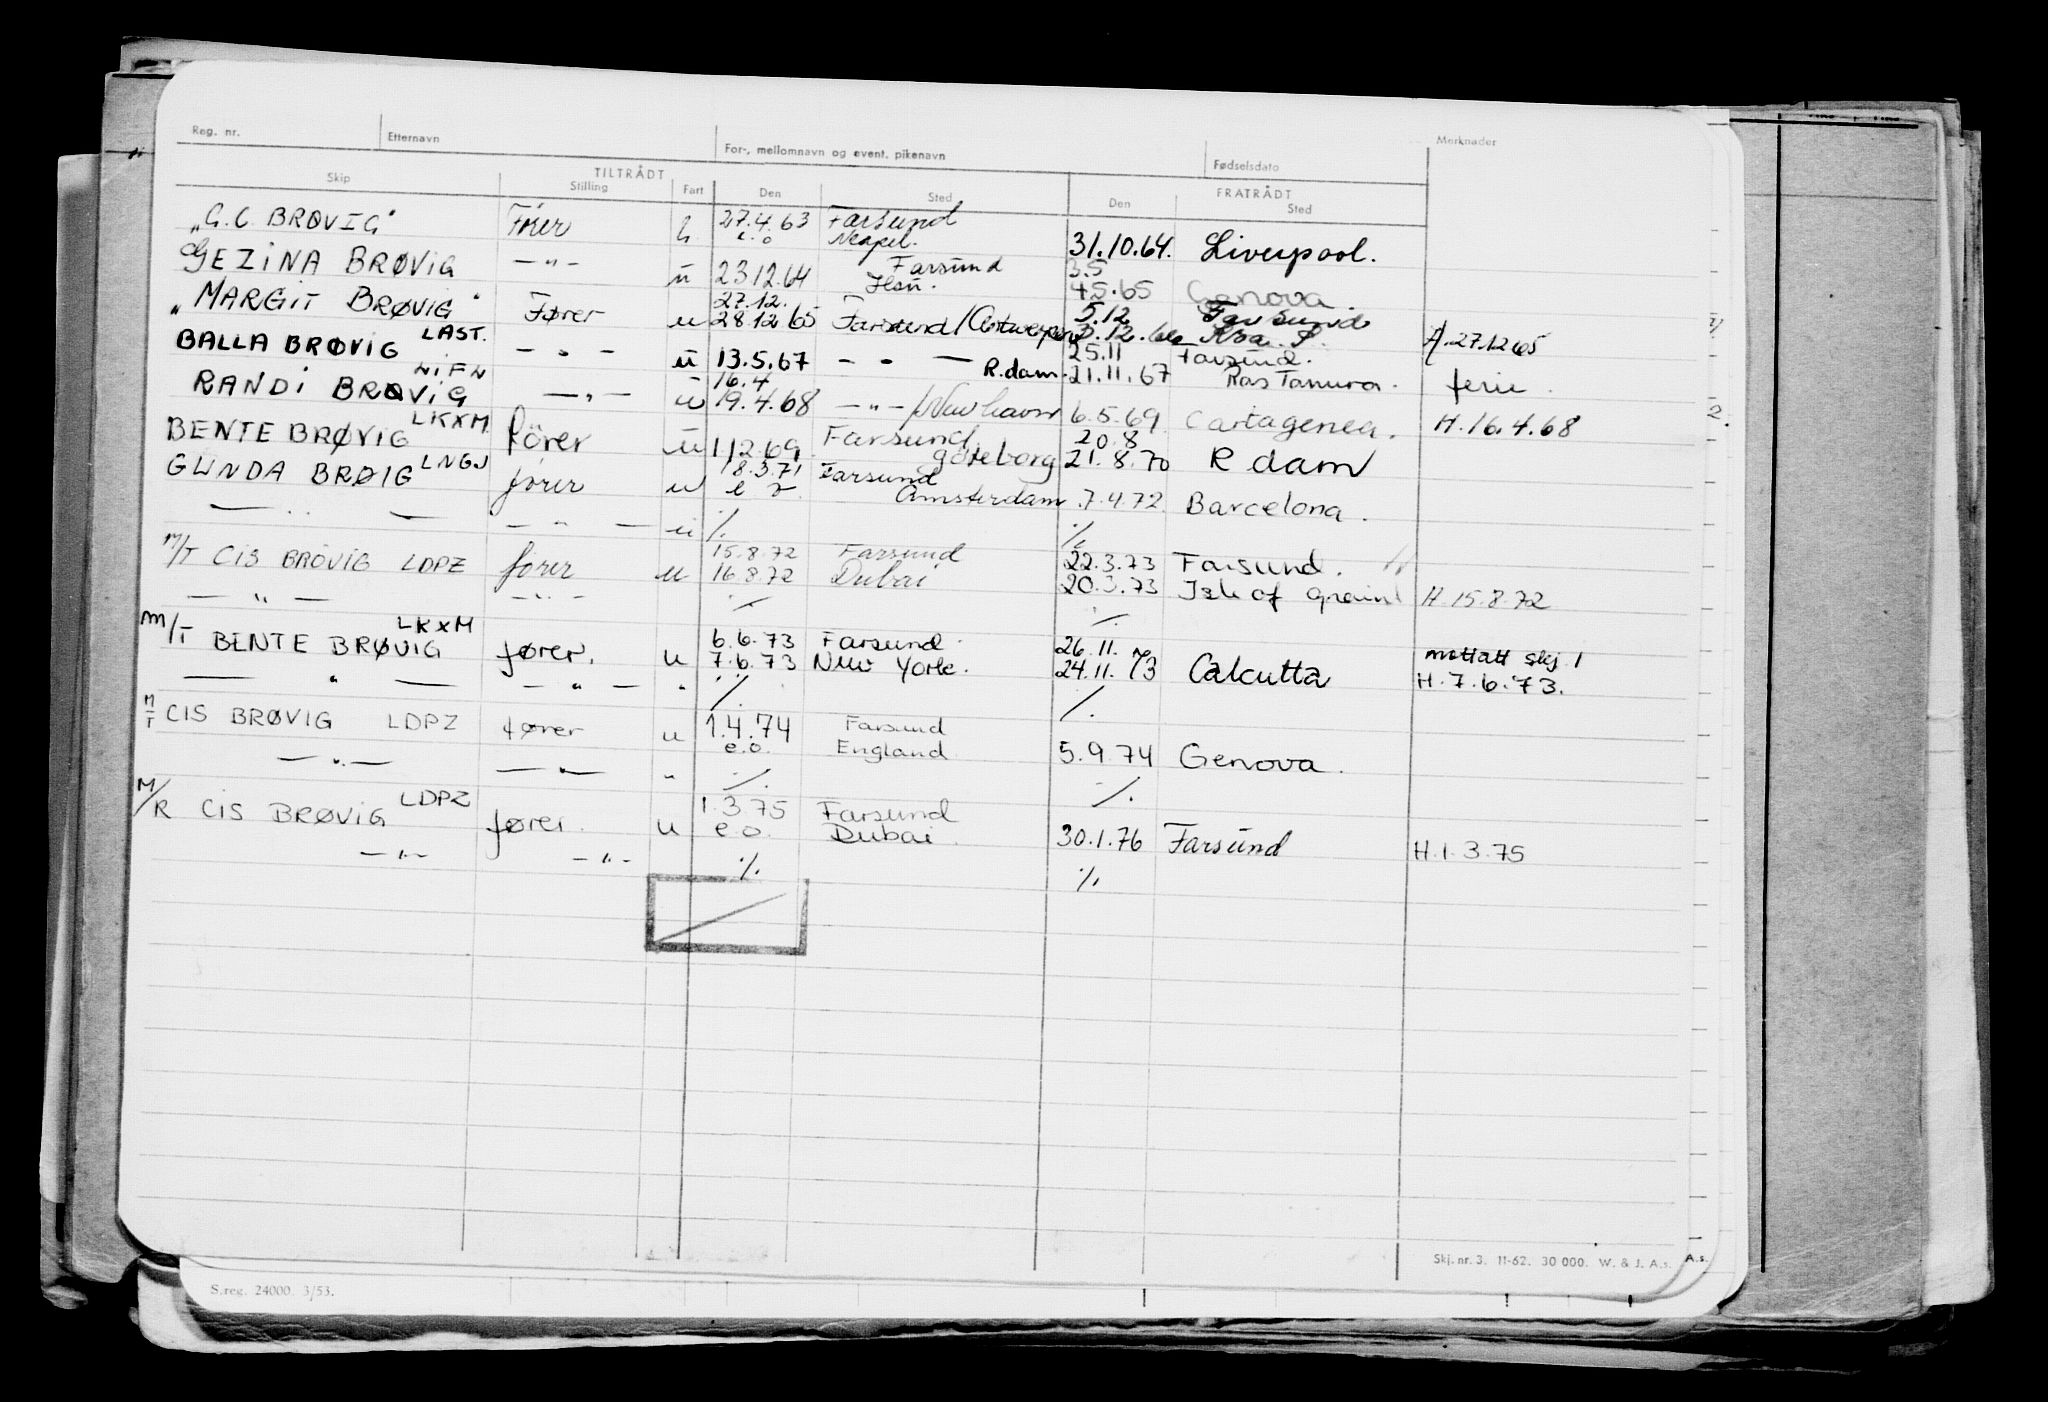 Reg. nr. Etternavn For-, mellomnavn og event. pikenavn Fødselsdato Merknader
TILTRÅDT FRATRÅDT
Skip Stilling Fart Den Sted Den Sted
"G.C. BRØVIG" Fører 27.4.63 Farsund
e.o Neapel. 31.10.64. Liverpool.
GEZINA BRØVIG —"— u 23.12.64 Farsund 3.5
4.5.65 Genova.
"MARGIT BRØVIG" Fører 27.12. 5.12 Farsund
u 28.12.65 Farsund/Antwerpen 3.12.66 27.12.65
BALLA BRØVIG LAST. —"— u 13.5.67 —"— R.dam. 25.11 Farsund.
21.11.67 Ras Tanura. ferie.
RANDI BRØVIG —"— u 16.4
19.4.68 —"—/ 6.5.69 Cartagenea. H.16.4.68
BENTE BRØVIG LKXM förer u 1.12.69 Farsund göteborg 20.8
21.8.70 R dam
GUNDA BRØIG LNGJ fører u 18.3.71 Farsund
Amsterdam 7.4.72. Barcelona.
— " — — " — u ./. ./.
M/T CIS BRÖVIG LDPZ fører u 15.8.72 Farsund 22.3.73 Farsund.
16.8.72 Dubai 20.3.73 Isle of Grain H.15.8.72
— " — — " — ./. ./.
M/T BENTE BRØVIG LKXM fører. u 6.6.73 Farsund. 26.11.
7.6.73 New York. 24.11.73 Calcutta mottatt skj 1
H.7.6.73.
— " — — " — " ./. ./.
M/T CIS BRØVIG LDPZ fører u 1.4.74 Farsund
e.o. England 5.9.74 Genova.
— " — — " — " ./. ./.
M/R CIS BRØVIG LDPZ fører. u 1.3.75 Farsund
e.o. Dubai. 30.1.76 Farsund H.1.3.75
— " — — " — ./. ./.
Skj. nr. 3. 11-62. 30 000. W. & J. A.s. A.s.
S.reg. 24000. 3/53.